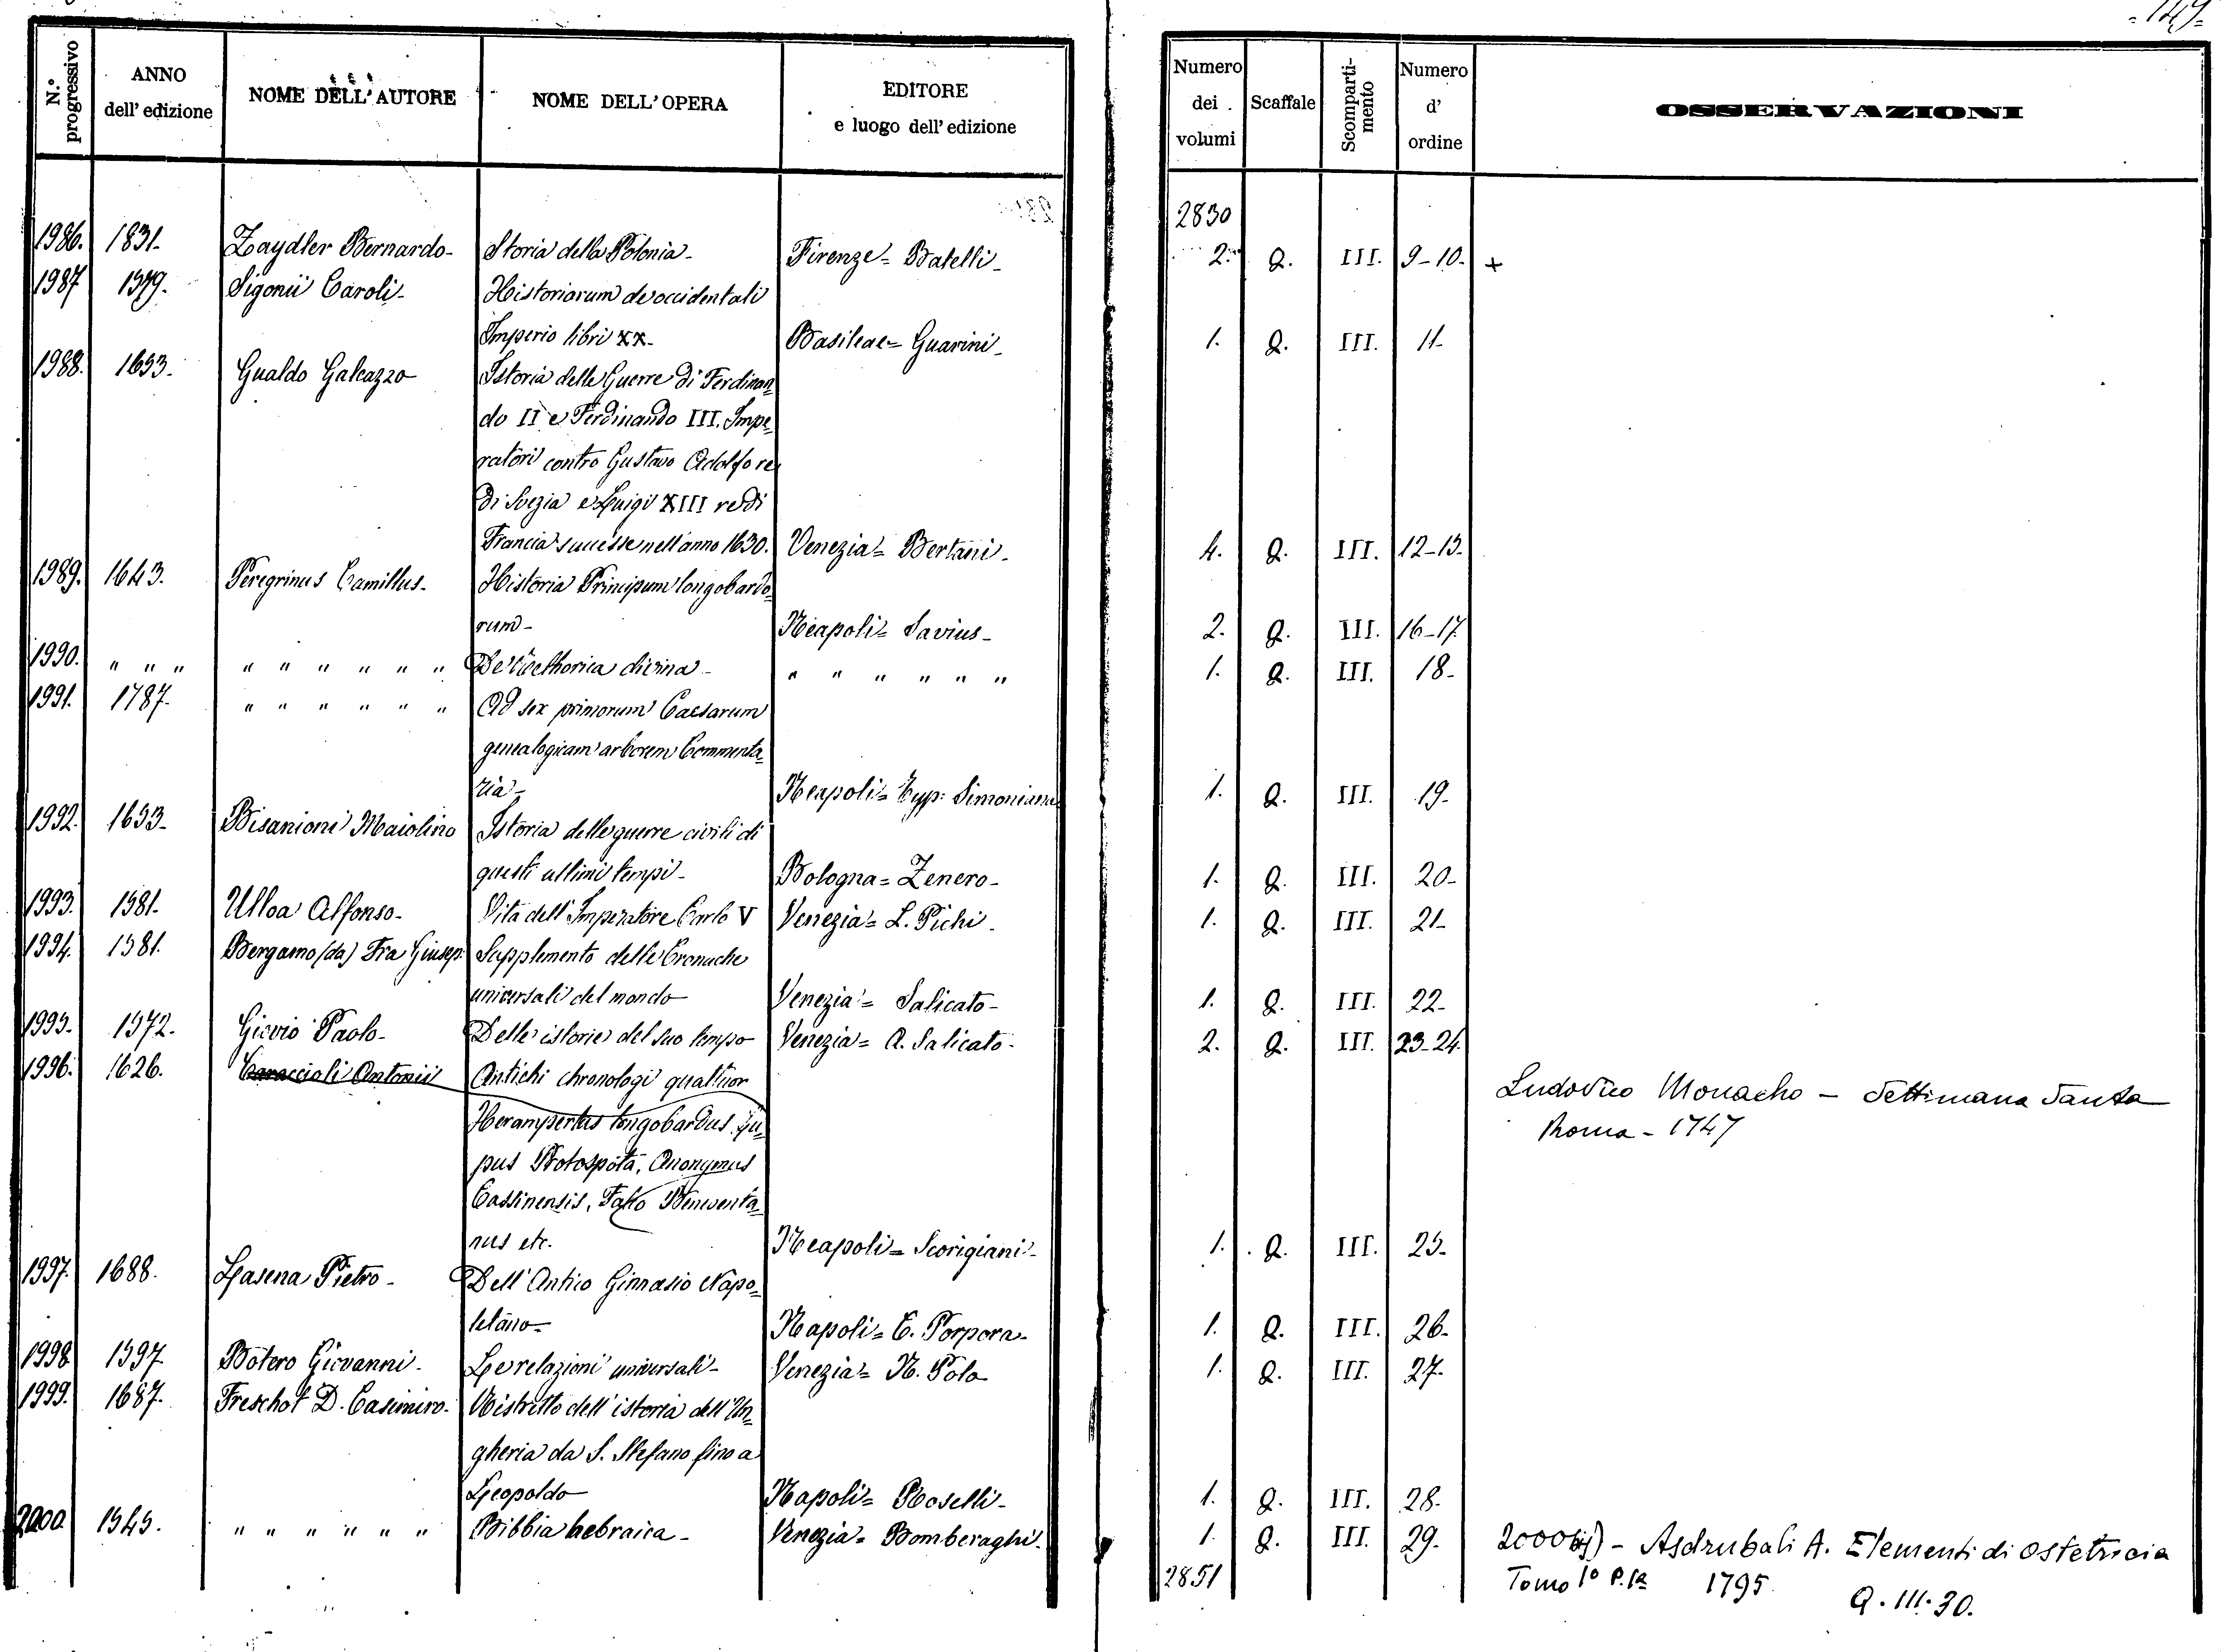 - 149 -
N.° progressivo
ANNO dell' edizione
NOME DELL' AUTORE
NOME DELL' OPERA
EDITORE e luogo dell' edizione
Numero dei volumi
Scaffale
Scomparti-mento
Numero d' ordine
OSSERVAZIONI
2830
1986. 1831. Zaydler Bernardo - Storia della Polonia - Firenze = Batelli - 2. Q. III. 9-10. +
1987 1579. Sigonii Caroli - Historiarum de occidentali
Imperio libri XX. Basileae = Guarini - 1. Q. III. 11.
1988. 1653. Gualdo Galeazzo Istoria delle Guerre di Ferdinan=
do II e Ferdinando III. Impe=
ratori contro Gustavo Adolfo re
di Svezia e Luigi XIII re di
Francia successe nell'anno 1630. Venezia = Bertani - 4. Q. III. 12-15.
1989. 1643. Peregrinus Camillus - Historia Principum longobardo=
rum - Neapoli = Savius - 2. Q. III. 16-17.
1990. " " " " " " " " " De Rethorica divina - " " " " " " 1. Q. III. 18-
1991. 1787. " " " " " " Ad sex primorum Caesarum
genealogicam arborem Commenta=
ria - Neapoli = Typ: Simoniana 1. Q. III. 19-
1992. 1653. Bisanioni Maiolino Istoria delle guerre civili di
questi ultimi tempi - Bologna = Zenero - 1. Q. III. 20-
1993. 1581. Ulloa Alfonso - Vita dell'Imperatore Carlo V Venezia = L. Pichi - 1. Q. III. 21-
1994. 1581. Bergamo (da) Fra Giusep: Supplemento delle Cronache
universali del mondo Venezia = Salicato - 1. Q. III. 22-
1995. 1572. Giovio Paolo - Delle istorie del suo tempo Venezia = A. Salicato - 2. Q. III. 23-24.
1996. 1626. Caraccioli Antonii Antichi chronologi quattuor
Herampertus longobardus. Lu=
pus Protospota, Anonymus
Cassinensis, Falco Beneventa=
nus etc. Neapoli = Scorigiani - 1. Q. III. 25-
Ludovico Monacho - Settimana Santa
Roma - 1747
1997. 1688. Lasena Pietro - Dell'Antico Ginnasio Napo=
letano - Napoli = C. Porpora - 1. Q. III. 26-
1998 1597. Botero Giovanni - Le relazioni universali - Venezia = N. Polo 1. Q. III. 27-
1999. 1687. Freschot D. Casimiro - Ristretto dell'istoria dell'Un=
gheria da S. Stefano fino a
Leopoldo Napoli = Roselli - 1. Q. III. 28-
2000. 1545. " " " " " " Bibbia hebraica - Venezia = Bomberaghi - 1. Q. III. 29-
2851
2000 bis) - Asdrubali A. Elementi di Ostetricia
Tomo 1° P. 1a 1795
Q. III. 30.